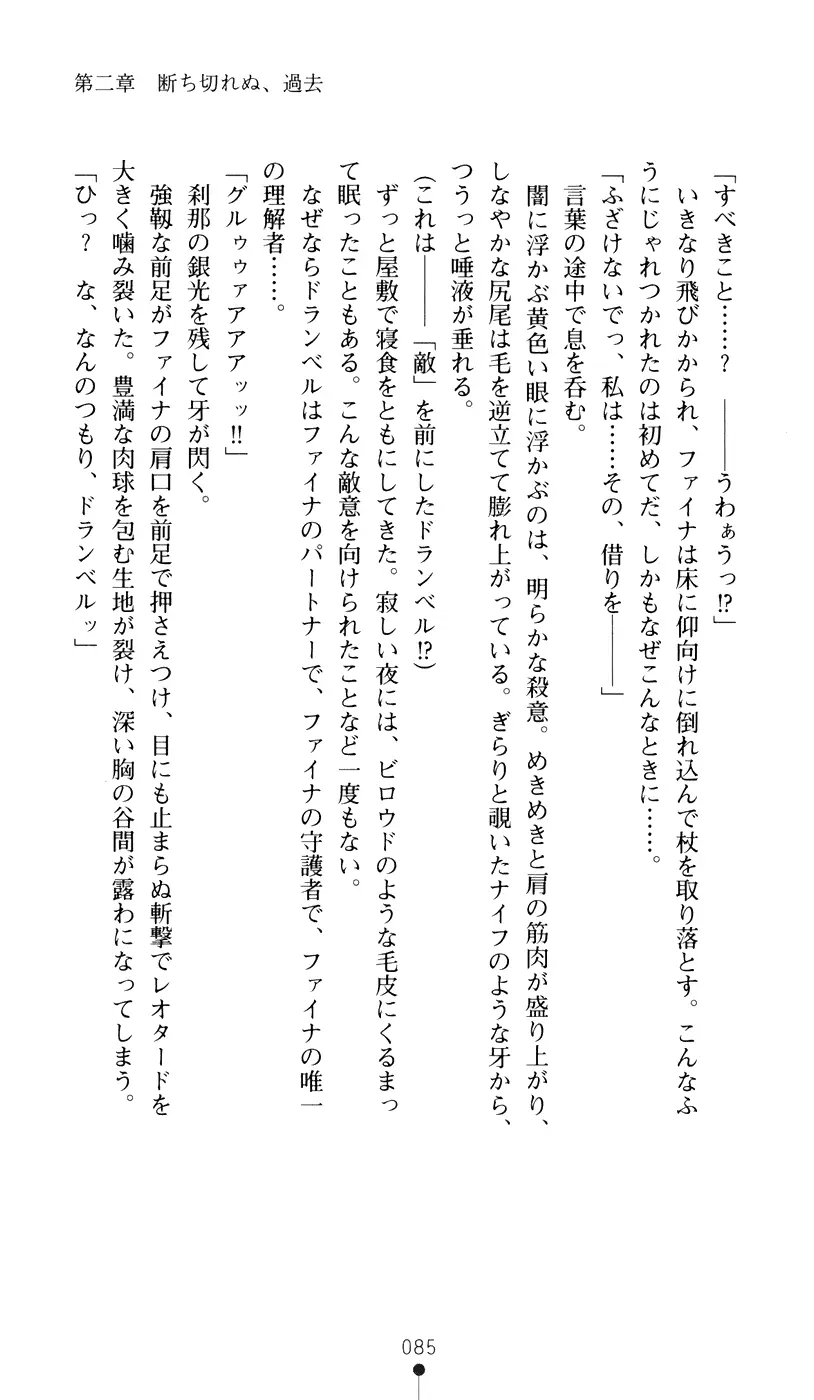 第二章　断ち切れぬ、過去
「すべきこと……？　――うわぁうっ!?」
　いきなり飛びかかられ、ファイナは床に仰向けに倒れ込んで杖を取り落とす。こんなふ
うにじゃれつかれたのは初めてだ、しかもなぜこんなときに……。
「ふざけないでっ、私は……その、借りを――」
　言葉の途中で息を呑む。
　闇に浮かぶ黄色い眼に浮かぶのは、明らかな殺意。めきめきと肩の筋肉が盛り上がり、
しなやかな尻尾は毛を逆立てて膨れ上がっている。ぎらりと覗いたナイフのような牙から、
つうっと唾液が垂れる。
（これは――「敵」を前にしたドランベル!?）
　ずっと屋敷で寝食をともにしてきた。寂しい夜には、ビロウドのような毛皮にくるまっ
て眠ったこともある。こんな敵意を向けられたことなど一度もない。
　なぜならドランベルはファイナのパートナーで、ファイナの守護者で、ファイナの唯一
の理解者……。
「グルゥゥァアアアッッ!!」
　刹那の銀光を残して牙が閃く。
　強靱な前足がファイナの肩口を前足で押さえつけ、目にも止まらぬ斬撃でレオタードを
大きく噛み裂いた。豊満な肉球を包む生地が裂け、深い胸の谷間が露わになってしまう。
「ひっ？　な、なんのつもり、ドランベルッ」
085